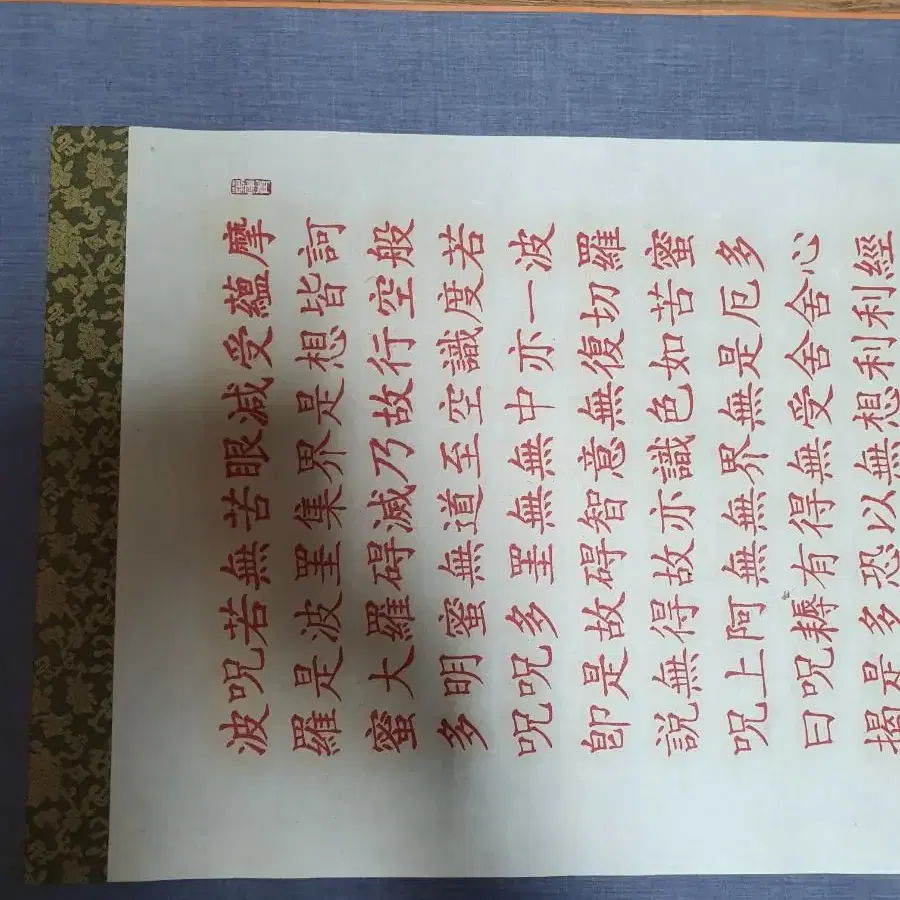 摩訶般若波羅蜜多心經
蘊皆空度一切苦厄舍利
受想行識亦復如是舍利
減是故空中無色無受想
眼界乃至無意識界無無
苦集滅道無智亦無得以
無罣碍無罣碍故無有恐
若波羅蜜多故得阿耨多
呪是大明呪是無上呪是
波羅蜜多呪卽說呪曰揭